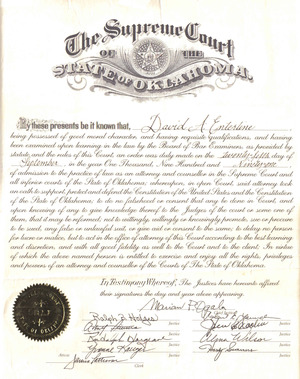 The Supreme Court
OF THE
STATE OF OKLAHOMA
By these presents be it known that, David A. Enterline
being possessed of good moral character, and having requisite qualifications, and having
been examined upon learning in the law by the Board of Bar Examiners, as prescribed by
statute and the rules of this Court, an order was duly made on the twenty-fifth day of
September in the year One Thousand Nine Hundred and
of admission to the practice of law as an attorney and counsellor in the Supreme Court and
all inferior courts of the State of Oklahoma; whereupon, in open Court, said attorney took
an oath to support, protect and defend the Constitution of the United States and the Constitution
of the State of Oklahoma; to do no falsehood or consent that any be done in Court, and
upon knowing of any to give knowledge thereof to the Judges of the court or some one of
them, that it may be reformed; not to wittingly, willingly or knowingly promote, sue or procure to
be sued, any false or unlawful suit, or give aid or consent to the same; to delay no person
for lucre or malice, but to act in the office of attorney of this Court according to the best learning
and discretion, and with all good fidelity as well to the Court and to the client. In virtue
of which the above named person is entitled to exercise and enjoy all the rights, privileges
and powers of an attorney and counsellor of the Courts of The State of Oklahoma.
In Testimony Whereof, The Justices have hereunto affixed
their signatures the day and year above appearing.
Marian P. Opala
Ralph B. Hodges
Robert
Rudolph Hargrave
Yvonne Kauger
Alma Wilson
Hardy Summers
Justice
Clerk